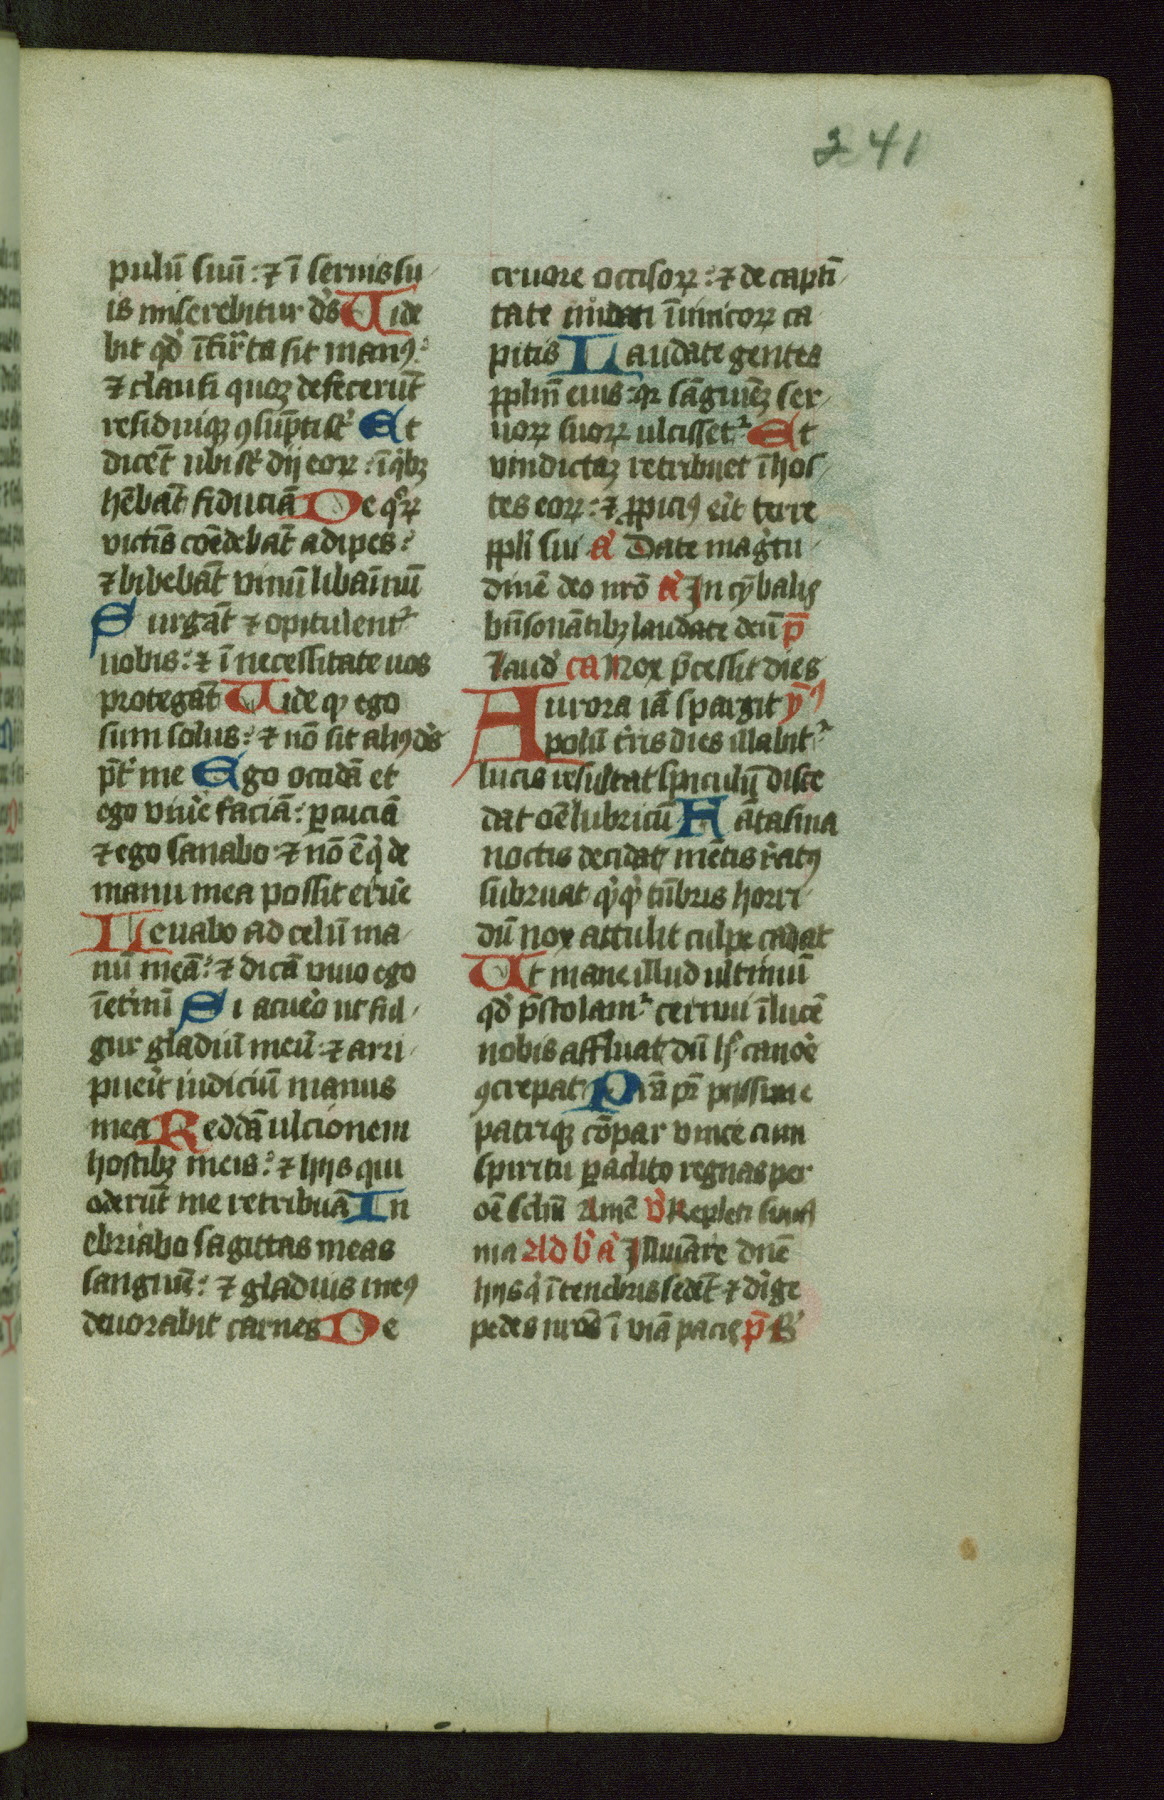 241
pulū suū : ⁊ ī seruis su
is miserebitur dꝰs Uide
bit qd' īfirᵃta sit manꝰ :
⁊ clausi quoqꝫ defecerūt
residuiqꝫ ꝯsūpti st' Et
dicēt ubi st' dij eoꝝ : ī qⁱbꝫ
hēbāt fiduciā De qᵒꝝ
victīs cōedebāt adipes :
⁊ bibebāt vinū libaīnū
Surgāt ⁊ opitulent᷑
uobis : ⁊ ī necessitate uos
protegāt Uide qꝫ ego
sum solus : ⁊ nō sit aliꝰ dꝰs
p̄t' me Ego occidā et
ego viue' faciā : ꝑcuciā
⁊ ego sanabo ⁊ nō ē qⁱ de
manu mea possit erue'
Leuabo ad celū ma
nū meā : ⁊ dicā viuo ego
īet'nū Si acue'o ut ful
gur gladiū meū : ⁊ arri
puei't iudiciū manus
mea Reddā ulcionem
hostibꝫ meis : ⁊ hijs qui
oderūt me retribuā In
ebriabo sagittas meas
sanguīe : ⁊ gladius meꝰ
deuorabit carnes De
cruore occisoꝝ : ⁊ de capti
tate nudati īimicoꝝ ca
pitis Laudate gentes
pplm̄ eius : qꝛ sāguīeꝫ ser
uoꝝ suoꝝ ulcisset᷑ Et
vindictaꝫ retribuet ī hos
tes eoꝝ : ⁊ ꝓpiciꝰ eit' terre
ppl'i sui a' Date mag'tu
dinē deo nrō a' In cȳbalis
bn̄sonātibꝫ laudate deū p̄
laud' ca Nox p̄cessit dies
Aurora iā spargit y̅ꝰ
polū t'ris dies illabit᷑
lucis resultat spiculū disce
dat oē lubricū Fātasma
noctis decidat mētis r'atꝰ
subruat qⁱqⁱ tn̄bris horri
dū nox attulit culpe cadat
Ut mane illud ultimū
qd' p̄stolam᷑ cernui ī lucē
nobis affluat dū h' canoe'
ꝯcrepat Pr̄a pr̄ piissime
patriqꝫ cōpar vnice cum
spiritu ꝑaclito regnas per
oē sclm̄ Amē v' Repleti sumꝰ
ma Ad b' a' Illuīare dnē
hijs qⁱ ī tenebris sedēt ⁊ di'ge
pedes nrōs ī viā pacis p̄ B'